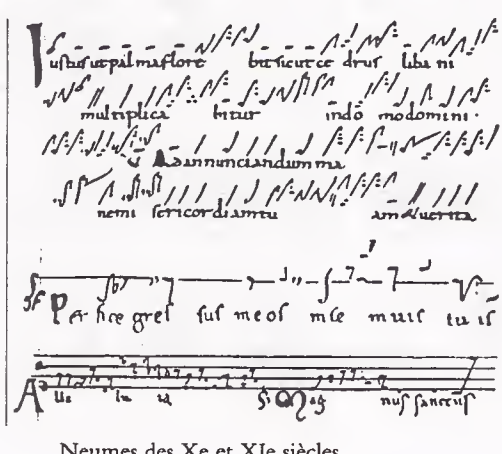 Iustus ut palma flore bit sicut ce drus liba ni
multiplica bitur indo mo domini.
Ad annunciandum ma
ne mi sericordiam tu am & verita
Per fice gres sus meos in se muis tuis
A
nus sanctus
Neumes des Xe et XIe siècles